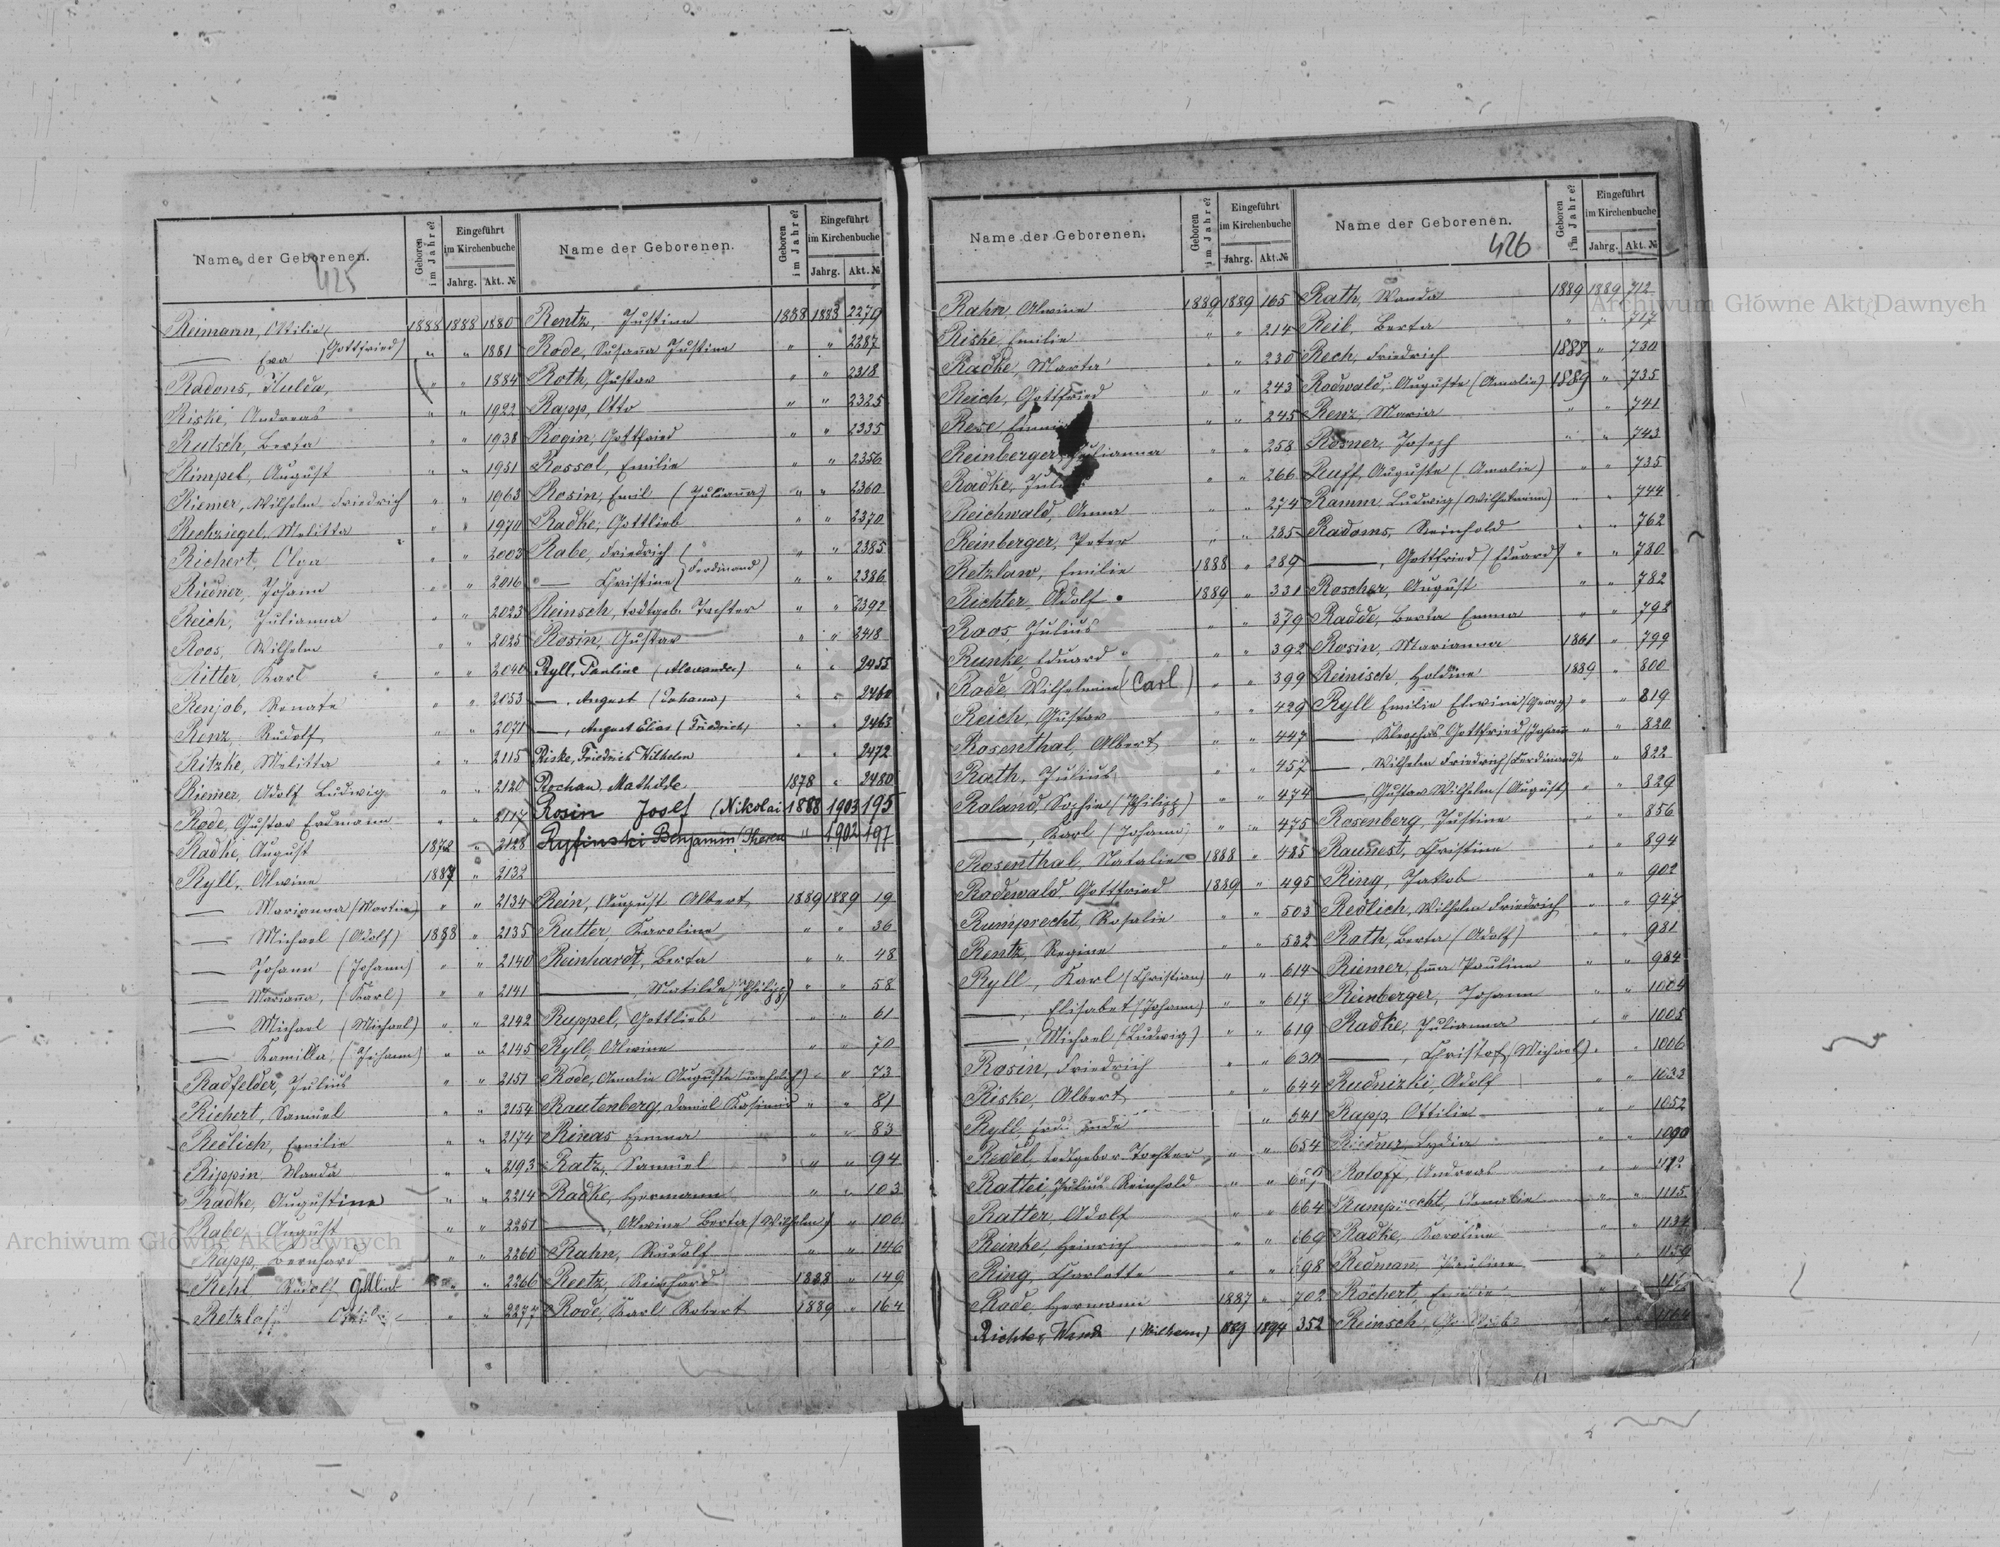 Archiwum Główne Akt Dawnych
Archiwum Główne Akt Dawnych
425
Name der Geborenen. Geboren im Jahre? Eingeführt im Kirchenbuche Jahrg. Akt. №
Reimann, Ottilie 1888 1888 1880
— Eva (Gottfried) " " 1881
Radons, Hulda, " " 1884
Riske, Andreas " " 1922
Rutsch, Berta " " 1938
Rimpel, August " " 1951
Riemer, Wilhelm Friedrich " " 1963
Rechziegel, Melitta " " 1970
Richert, Olga " " 2003
Riedner, Johann " " 2016
Reich, Julianna " " 2023
Roos, Wilhelm " " 2025
Ritter, Karl " " 2040
Renjob, Renate " " 2053
Renz, Rudolf " " 2071
Ritzke, Melitta " " 2115
Riemer, Adolf Ludwig " " 2120
Rode, Gustav Erdmann " " 2117
Radke, August 1872 " 2128
Ryll, Alwine 1887 " 2132
— Marianna (Martin) " " 2134
— Michael (Adolf) 1888 " 2135
— Johann (Johann) " " 2140
— Marianna, (Karl) " " 2141
— Michael (Michael) " " 2142
— Kamilla, (Johann) " " 2145
Radfelder, Julius " " 2151
Richert, Samuel " " 2154
Redlich, Emilie " " 2174
Rippin, Wanda " " 2193
Radke, Augustine " " 2214
Rabe, August " " 2251
Rapp, Bernhard " " 2260
Rehl Rudolf Gottlieb " 2266
Retzlaff " " 2277
Name der Geborenen. Geboren im Jahre? Eingeführt im Kirchenbuche Jahrg. Akt. №
Rentz, Justine 1888 1888 2270
Rode, Susanna Justine " " 2287
Roth, Gustav " " 2318
Rapp, Otto " " 2325
Rogin, Gottfried " " 2335
Rossol, Emilie " " 2356
Rosin, Emil (Julianna) " " 2360
Radke, Gottlieb " " 2370
Rabe, Friedrich " " 2385
— Christine (Ferdinand) " " 2386
Reinsch, todtgeb. Tochter " " 2392
Rosin, Gustav " " 2418
Ryll, Pauline (Alexander) " " 2455
—, August (Johann) " " 2460
—, August Elias (Friedrich) " " 2463
Riske, Friedrich Wilhelm " " 2472
Rochau, Mathilde 1878 " 2480
Rosin Josef (Nikolai 1888 1903 195
Ryfinski Benjamin " 1902 197
Rein, August Albert 1889 1889 19
Rutter, Karoline " " 36
Reinhardt, Berta " " 48
—, Matilde (Philipp) " " 58
Ruppel, Gottlieb " " 61
Ryll, Alwine " " 70
Rode, Amalie Auguste (unehelich) " " 73
Rautenberg, Daniel Kasimir " " 81
Rinas Emma " " 83
Ratz, Samuel " " 94
Radke, Hermann " " 103
—, Alwine Berta (Wilhelm) " 106
Rahn, Rudolf " " 146
Reetz, Reinhard 1888 " 149
Rode, Karl Robert 1889 " 164
426
Name der Geborenen. Geboren im Jahre? Eingeführt im Kirchenbuche Jahrg. Akt. №
Rahn, Alwine 1889 1889 165
Riske, Emilie " " 214
Radke Marta " " 230
Reich, Gottfried " " 243
Rese " " 245
Reinberger, Julianna " " 258
Radke, " " 266
Reichwald, Anna " " 274
Reinberger, Peter " " 285
Retzlaw, Emilie 1888 " 289
Richter, Adolf 1889 " 331
Roos, Julius " " 379
Runke, Eduard " " 392
Rode, Wilhelmine (Carl) " " 399
Reich, Gustav " " 429
Rosenthal Albert " " 447
Rath, Julius " " 457
Roland, Sophie (Philipp) " " 474
—, Karl (Johann) " " 475
Rosenthal, Natalie 1888 " 485
Rodewald, Gottfried 1889 " 495
Rumprecht, Rosalie " " 503
Rentz, Regine " " 532
Ryll, Karl (Christian) " " 614
—, Elisabet (Johann) " " 617
— Michael (Ludwig) " " 619
Rosin, Friedrich " " 630
Riske, Albert " " 644
Ryll " 641
Redel, todtgebor. Tochter " " 654
Rattei, Julius Reinhold " "
Ratter, Adolf " " 664
Reinke, Heinrich " " 669
Ring, Charlotte " " 698
Rode, Hermann 1887 " 702
Richter, Wanda (Wilhelm) 1889 1894 352
Name der Geborenen. Geboren im Jahre? Eingeführt im Kirchenbuche Jahrg. Akt. №
Rath, Wanda 1889 1889 712
Reib, Berta " " 717
Rech, Friedrich 1888 " 730
Rodwald, Auguste (Amalie) 1889 " 735
Renz, Maria " " 741
Rosner, Joseph " " 743
Ruff, Auguste (Amalie) " " 735
Ramm, Ludwig (Wilhelmine) " " 744
Radoms, Reinhold " " 762
—, Gottfried (Eduard) " " 780
Roscher, August " " 782
Radde, Berta Emma " " 792
Rosin, Marianna 1861 " 799
Reinisch, Holdine 1889 " 800
Ryll Emilie Elwine (Georg) " " 819
— Kleophas Gottfried (Johann " " 820
—, Wilhelm Friedrich (Ferdinand) " " 822
—, Gustav Wilhelm (August) " " 829
Rosenberg, Justine " " 856
Raunest, Christine " " 894
Ring, Jakob " " 902
Redlich, Wilhelm Friedrich " " 947
Rath, Berta (Adolf) " " 981
Riemer, Emma Pauline " " 984
Reinberger, Johann " " 1004
Radke, Julianna " " 1005
—, Christof (Michael) " " 1006
Rudnizki, Adolf " " 1033
Rapp, Ottilie " " 1052
Riedner, Lydia " " 1090
Roloff, Andreas " "
Rumprecht, Amalie " " 1115
Radke, Karoline " " 1134
Redmann, Pauline " " 1159
Röchert, Emilie " "
Reinsch,